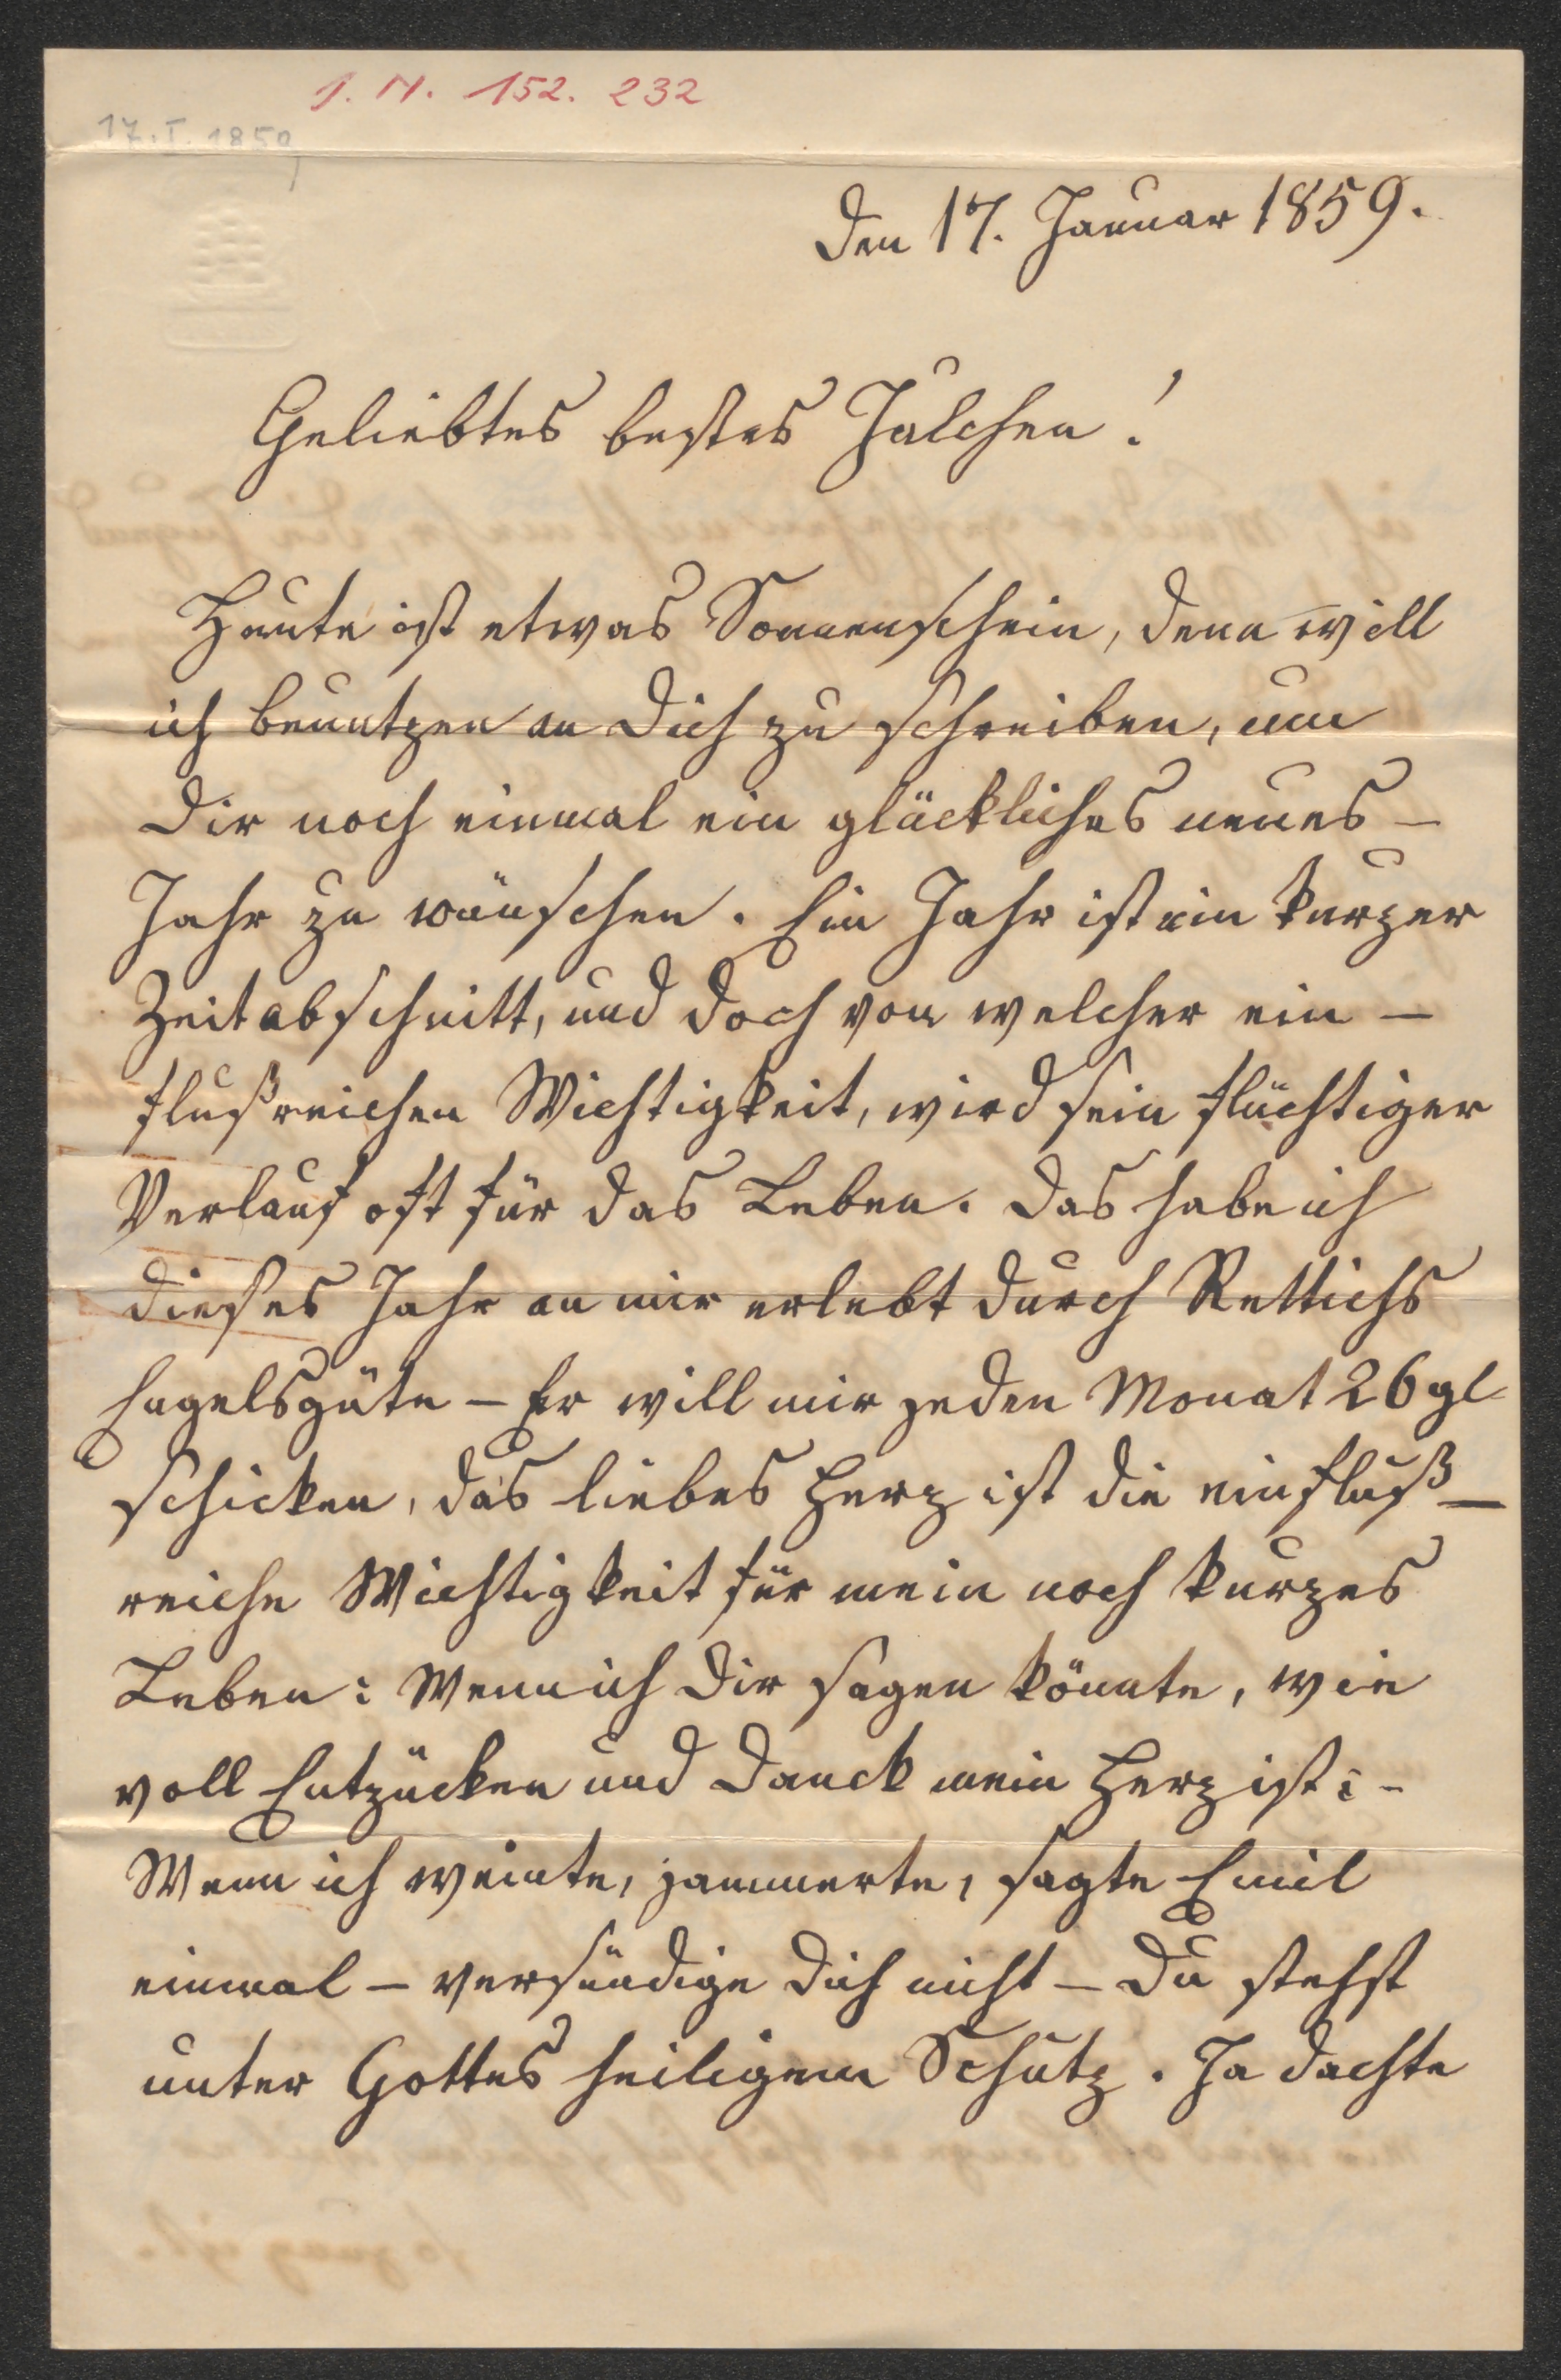 I. N. 152. 232
17. I. 1859
Den 17. Januar 1859.
Geliebtes bestes Julchen!
Heute ist etwas Sonnenschein, denn will
ich benutzen an Dich zu schreiben, um
Dir noch einmal ein glückliches neues –
Jahr zu wünschen. Ein Jahr ist ein kurzer
Zeitabschnitt, und doch von welcher ein –
flußreichen Wichtigkeit, wird sein flüchtiger
Verlauf oft für das Leben. Das habe ich
dieses Jahr an mir erlebt durch Rettichs
Engelsgüte – Er will mir jeden Monat 26 gl
schicken, das liebes Herz ist die einfluß –
reiche Wichtigkeit für mein noch kurzes
Leben: Wenn ich Dir sagen könnte, wie
voll Entzücken und Danck mein Herz ist: –
Wenn ich weinte, jammerte, sagte Emil
einmal – versündige Dich nicht – Du stehst
unter Gottes heiligem Schutz. Ja dachte